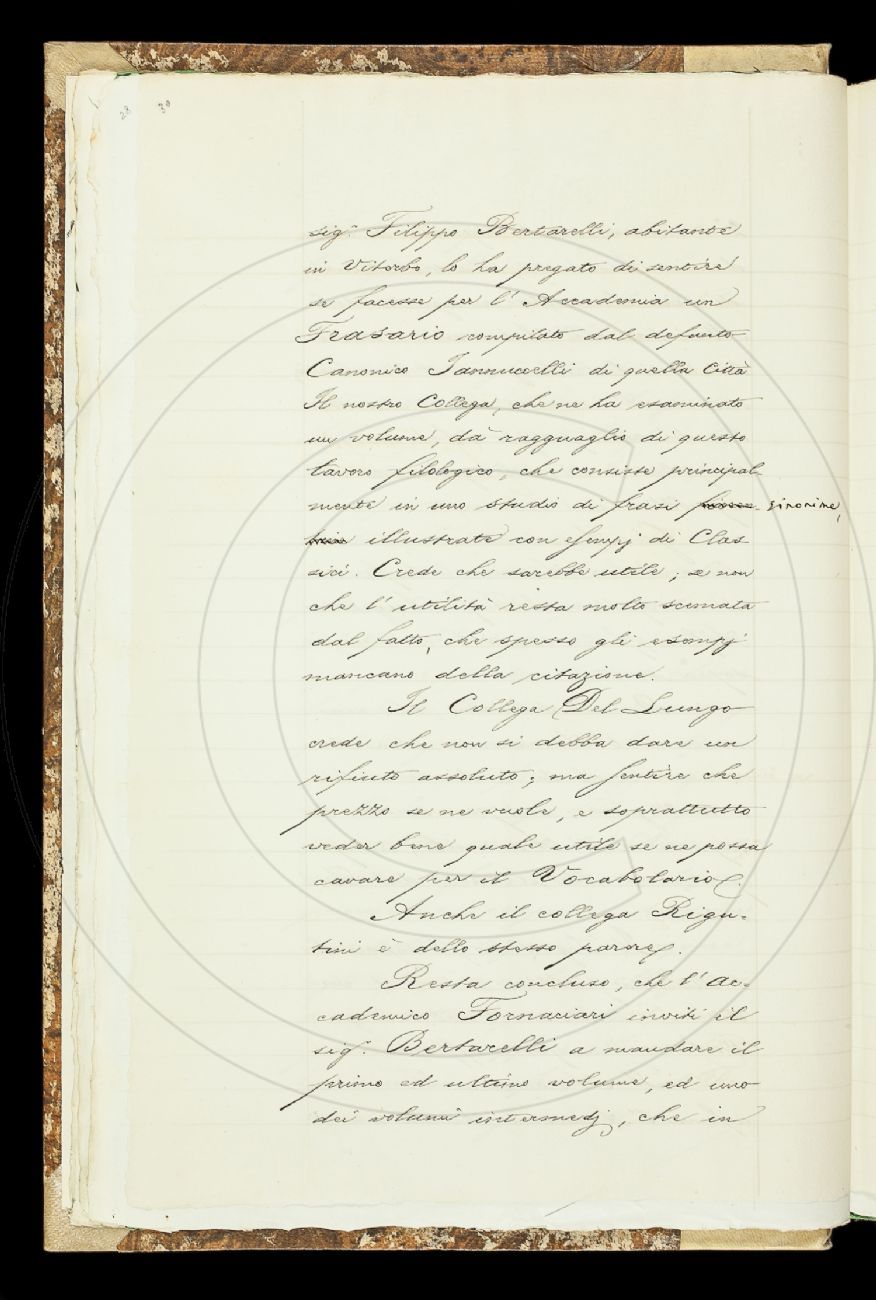 28 30
sig.r Filippo Bertarelli, abitante
in Viterbo, lo ha pregato di sentire
se facesse per l'Accademia un
Frasario compilato dal defunto
Canonico Iannucelli di quella Città
Il nostro Collega, che ne ha esaminato
un volume, dà ragguaglio di questo
lavoro filologico, che consiste principal-
mente in uno studio di frasi sinonime,
illustrate con esempj di Clas
sici. Crede che sarebbe utile; se non
che l'utilità resta molto scemata
dal fatto, che spesso gli esempj
mancano della citazione.
Il Collega Del Lungo
crede che non si debba dare un
rifiuto assoluto; ma sentire che
prezzo se ne vuole, e soprattutto
veder bene quale utile se ne possa
cavare per il Vocabolario.
Anche il collega Rigu-
tini è dello stesso parere.
Resta concluso, che l'Ac-
cademico Fornaciari inviti il
sig.r Bertarelli a mandare il
primo ed ultimo volume, ed uno
dei volumi intermedj, che in